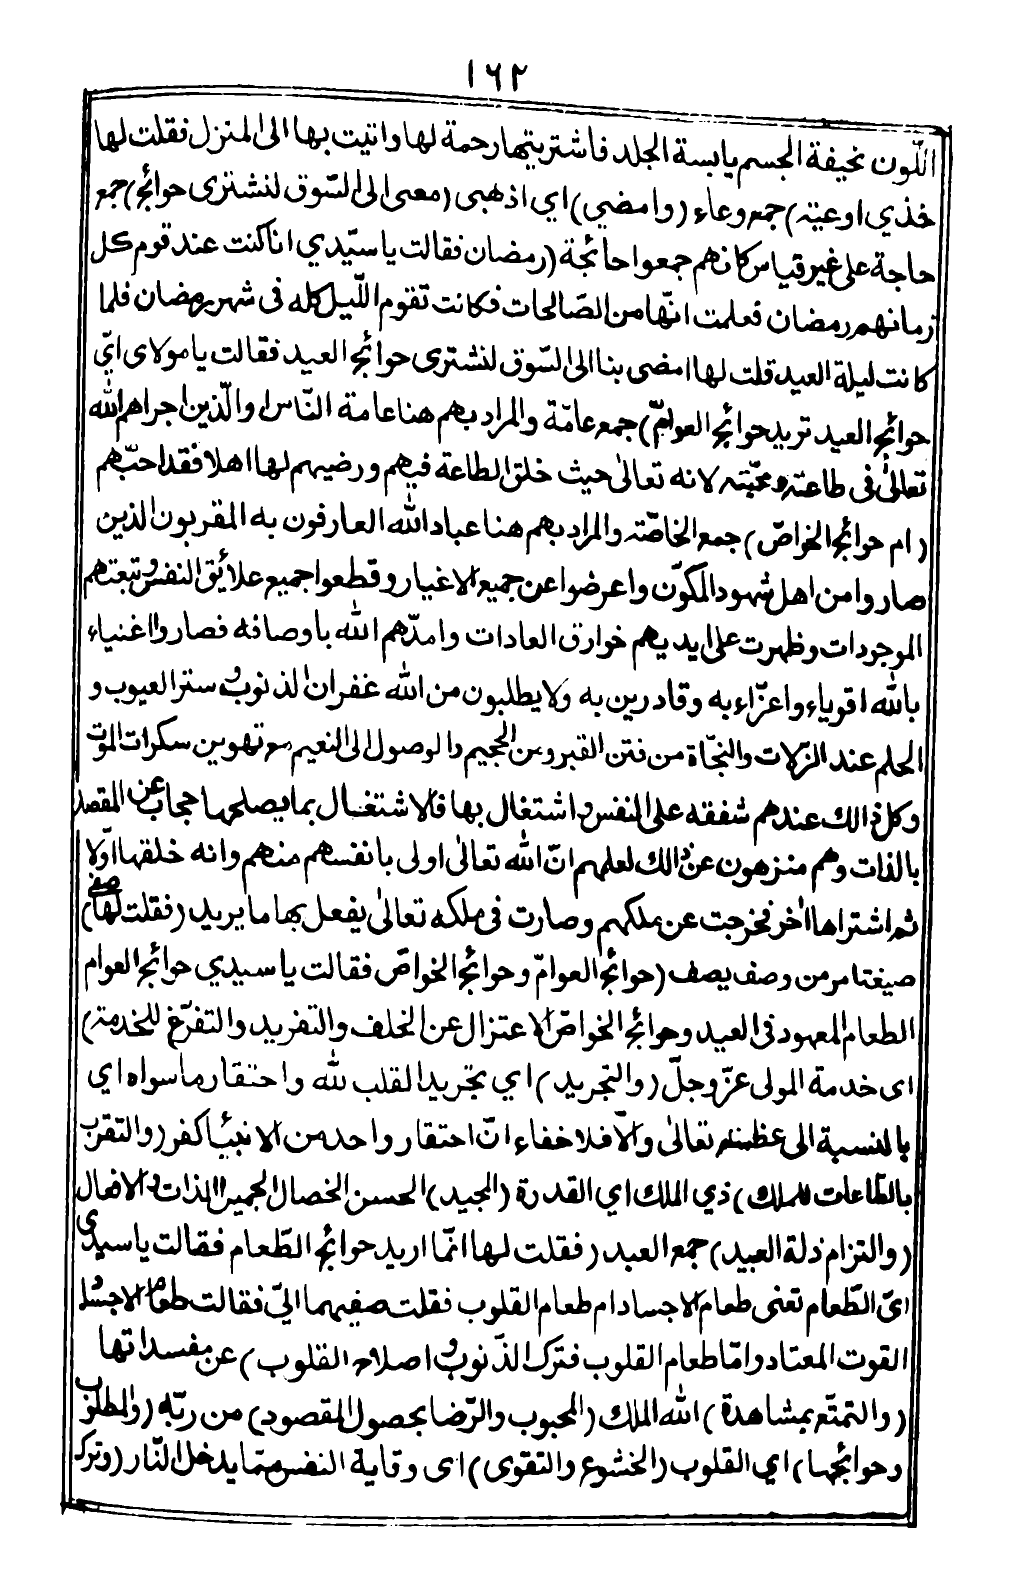 ١٦٢
اللّون نحيفة الجسم يابسة الجلد فاشتريتها رحمة لها واتيت بها الى المنزل فقلت لها
خذي اوعية) جمع وعاء (وامضي) اي اذهبى (معى الى السّوق لنشترى حوائج) جمع
حاجة على غير قياس كانهم جمعوا حائجة (رمضان فقالت يا سيّدي انا كنت عند قوم كل
زمانهم رمضان فعلمت انّها من الصّالحات فكانت تقوم اللّيل كله فى شهر رمضان فلما
كانت ليلة العيد قلت لها امضى بنا الى السّوق لنشترى حوائج العيد فقالت يا مولاى ايّ
حوائج العيد تريد حوائج العوامّ) جمع عامّة والمراد بهم هنا عامة النّاس والّذين اجراهم الله
تعالى فى طاعته ومحبّته لانه تعالى حيث خلق الطاعة فيهم ورضيهم لها اهلا فقد احبّهم
(ام حوائج الخواصّ) جمع الخاصّة والمراد بهم هنا عباد الله العارفون به المقربون الذين
صاروا من اهل شهود المكوّن واعرضوا عن جميع الاغيار وقطعوا جميع علائق النفس وتبعتهم
الموجودات وظهرت على ايديهم خوارق العادات وامدّهم الله باوصافه فصاروا اغنياء
بالله اقوياء واعزّاء به وقادرين به ولا يطلبون من الله غفران الذنوب وستر العيوب و
الحلم عند الزلات والنجّاة من فتن القبر وعن الجحيم والوصول الى النعيم مع تهوين سكرات الموت
وكل ذالك عندهم شفقه على النفس واشتغال بها فالاشتغال بما يصلحها حجاب عن المقصد
بالذات وهم منزهون عن ذالك لعلمهم انّ الله تعالى اولى بانفسهم منهم وانه خلقها اوّلا
ثم اشتراها اٰخر فخرجت عن ملكهم وصارت فى ملكه تعالى يفعل بها ما يريد (فقلت لها صفى)
صيغتا مر من وصف يصف (حوائج العوامّ وحوائج الخواصّ فقالت يا سيدي حوائج العوام
الطعام المعهود فى العيد وحوائج الخواصّ الاعتزال عن الخلف والتفريد والتفرّغ للخدمة)
اى خدمة المولى عزّ وجلّ (والتجريد) اي تجريد القلب لله واحتقار ما سواه اي
بالنسبة الى عظمته تعالى والّا فلا خفاء انّ احتقار واحد من الانبيٓاء كفر (والتقرب
بالطّاعات للملك) ذي الملك اي القدرة (المجيد) الحسن الخصال الجميل الذات والافعال
(والتزام ذلة العبيد) جمع العبد (فقلت لها انّما اريد حوائج الطّعام فقالت يا سيدي
ايّ الطّعام تعنى طعام الاجساد ام طعام القلوب فقلت صفيهما اليّ فقالت طعام الاجساد
القوت المعتاد وامّا طعام القلوب فترك الذّنوب واصلاح القلوب) عن مفسداتها
(والتمتّع بمشاهدة) الله الملك (المحبوب والرّضا بحصول المقصود) من ربّه (والمطلوب
وحوائجها) اي القلوب (الخشوع والتقوى) اى وقاية النفس ممّا يدخل النّار (وترك